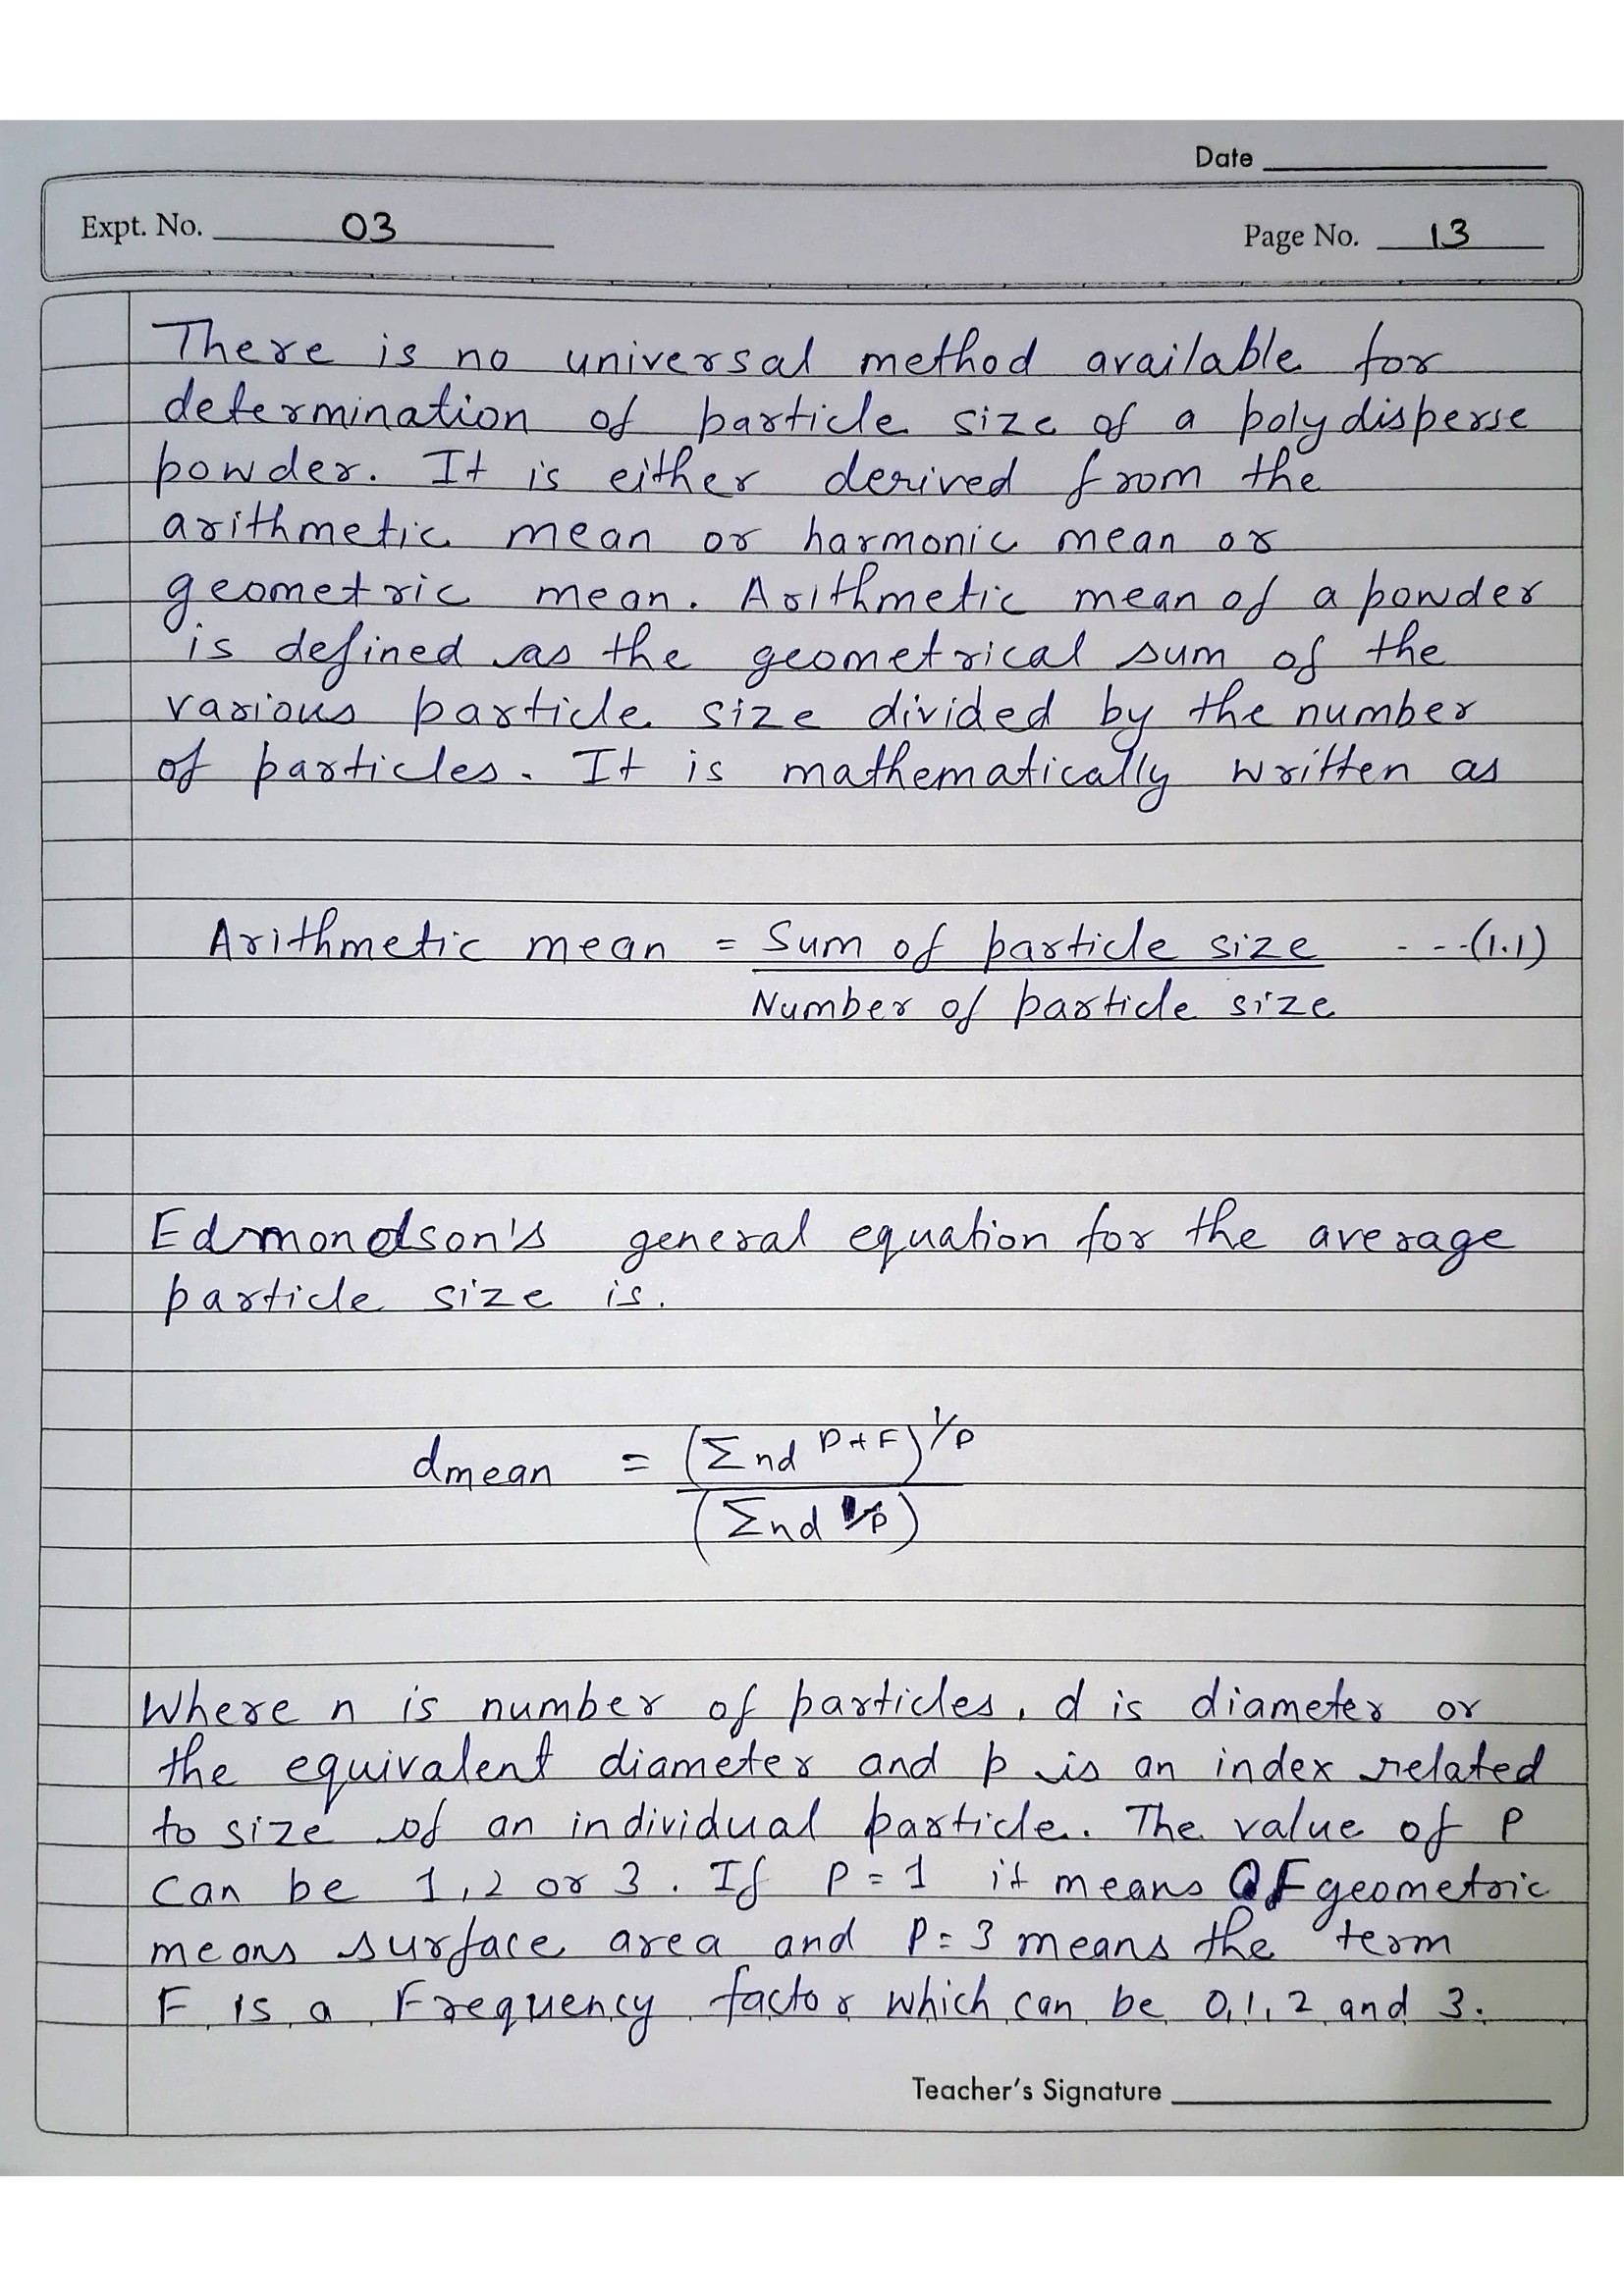 Date
Expt. No. 03
Page No. 13
There is no universal method available for
determination of particle size of a polydisperse
powder. It is either derived from the
arithmetic mean or harmonic mean or
geometric mean. Arithmetic mean of a powder
is defined as the geometrical sum of the
various particle size divided by the number
of particles. It is mathematically written as
Arithmetic mean = Sum of particle size - - - (1.1)
Number of particle size
Edmondson's general equation for the average
particle size is.
dmean = (Σnd P+F)1/P
(Σnd 1/P)
Where n is number of particles, d is diameter or
the equivalent diameter and p is an index related
to size of an individual particle. The value of P
can be 1,2 or 3. If P=1 it means OF geometric
means surface area and P=3 means the term
F is a Frequency factor which can be 0,1,2 and 3.
Teacher's Signature